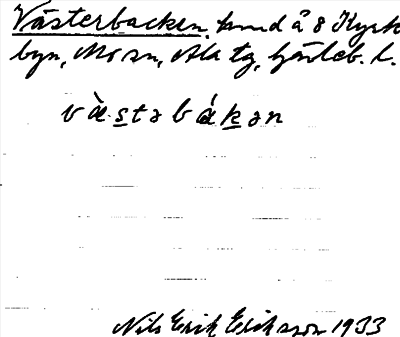 Västerbacken, hmd å 8 Kyrk
byn, Mo sn, Ala tg, Gävleb. l.
v à̀ s t ə b á k ə n
Nils Erik Eriksson 1933